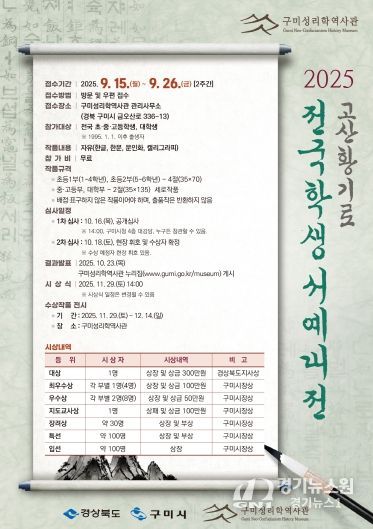 구미성리학역사관
Gumi Neo-Confucianism History Museum
2025
고산황기로
전국학생서예대전
접수기간 | 2025. 9. 15.(월) ~ 9. 26.(금) [2주간]
접수방법 | 방문 및 우편 접수
접수장소 | 구미성리학역사관 관리사무소
(경북 구미시 금오산로 336-13)
참가대상 | 전국 초·중·고등학생, 대학생
※ 1995. 1. 1. 이후 출생자
작품내용 | 자유(한글, 한문, 문인화, 캘리그라피)
참 가 비 | 무료
작품규격
· 초등1부(1~4학년), 초등2부(5~6학년) - 4절(35×70)
· 중·고등부, 대학부 - 2절(35×135) 세로작품
· 배접·표구하지 않은 작품이어야 하며, 출품작은 반환하지 않음
심사일정
· 1차 심사 : 10. 16.(목), 공개심사
※ 14:00, 구미시청 4층 대강당, 누구든 참관할 수 있음.
· 2차 심사 : 10. 18.(토), 현장 휘호 및 수상자 확정
※ 수상 예정자 현장 휘호 있음.
결과발표 | 2025. 10. 23.(목)
구미성리학역사관 누리집(www.gumi.go.kr/museum) 게시
시 상 식 | 2025. 11. 29.(토) 14:00
※ 시상식 일정은 변경될 수 있음
수상작품 전시
· 기 간 : 2025. 11. 29.(토) ~ 12. 14.(일)
· 장 소 : 구미성리학역사관
시상내역
등 위 시 상 자 시상내역 비 고
대상 1명 상장 및 상금 300만원 경상북도지사상
최우수상 각 부별 1명(4명) 상장 및 상금 100만원 구미시장상
우수상 각 부별 2명(8명) 상장 및 상금 50만원 구미시장상
지도교사상 1명 상패 및 상금 100만원 구미시장상
장려상 약 30명 상장 및 부상 구미시장상
특선 약 100명 상장 및 부상 구미시장상
입선 약 100명 상장 구미시장상
경상북도 구미시 구미성리학역사관
Gumi Neo-Confucianism History Museum
경기뉴스원
경기뉴스1